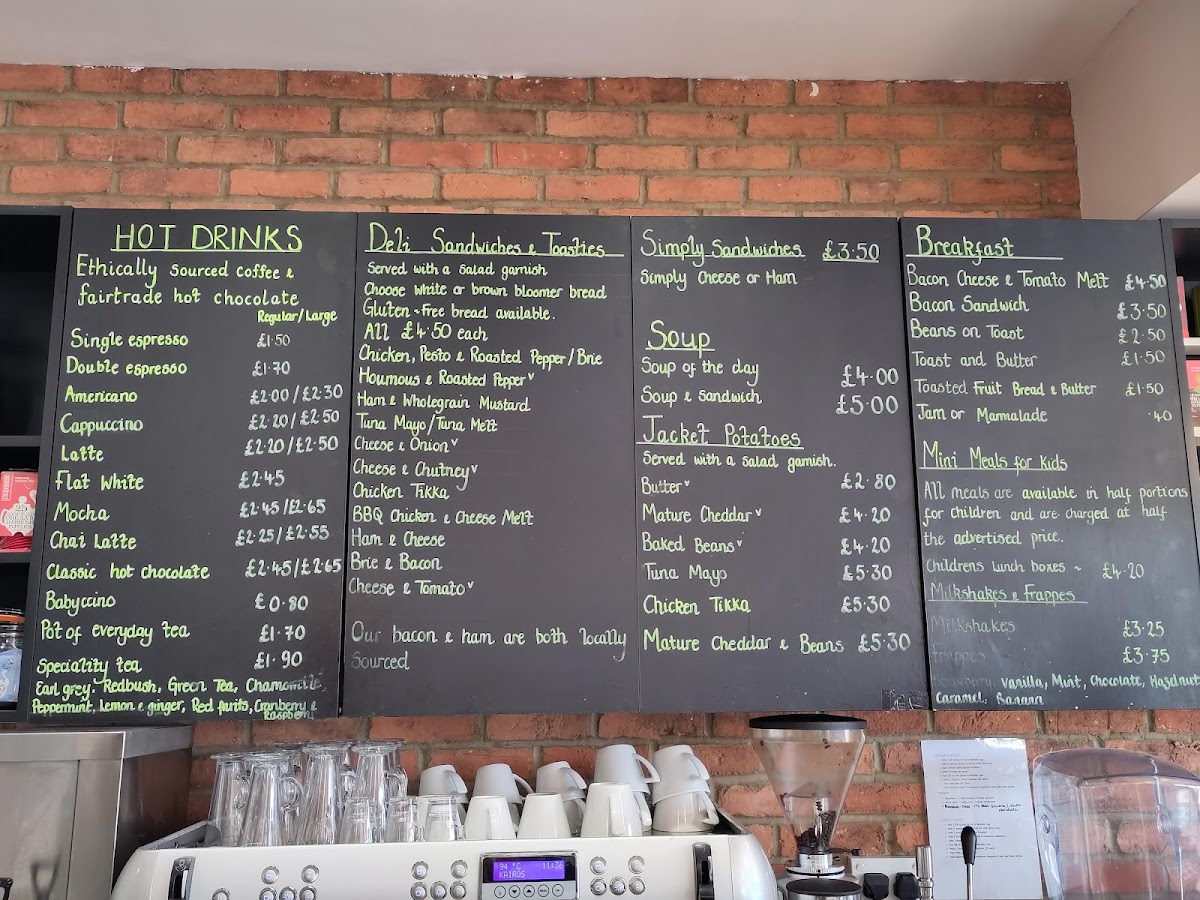 HOT DRINKS
Ethically sourced coffee &
fairtrade hot chocolate
Regular/Large
Single espresso £1.50
Double espresso £1.70
Americano £2.00/£2.30
Cappuccino £2.20/£2.50
Latte £2.20/£2.50
Flat White £2.45
Mocha £2.45/£2.65
Chai Latte £2.25/£2.55
Classic hot chocolate £2.45/£2.65
Babyccino £0.80
Pot of everyday tea £1.70
Speciality tea £1.90
Earl grey. Redbush, Green Tea, Chamomile,
Peppermint, Lemon & ginger, Red fruits, Cranberry &
Raspberry
Deli Sandwiches & Toasties
Served with a salad garnish
Choose white or brown bloomer bread
Gluten-Free bread available.
All £4.50 each
Chicken, Pesto & Roasted Pepper/Brie
Houmous & Roasted Pepper v
Ham & Wholegrain Mustard
Tuna Mayo/Tuna Melt
Cheese & Onion v
Cheese & Chutney v
Chicken Tikka
BBQ Chicken & Cheese Melt
Ham & Cheese
Brie & Bacon
Cheese & Tomato v
Our bacon & ham are both locally
Sourced
Simply Sandwiches £3.50
Simply Cheese or Ham
Soup
Soup of the day £4.00
Soup & Sandwich £5.00
Jacket Potatoes
Served with a salad garnish.
Butter v £2.80
Mature Cheddar v £4.20
Baked Beans v £4.20
Tuna Mayo £5.30
Chicken Tikka £5.30
Mature Cheddar & Beans £5.30
Breakfast
Bacon Cheese & Tomato Melt £4.50
Bacon Sandwich £3.50
Beans on Toast £2.50
Toast and Butter £1.50
Toasted Fruit Bread & Butter £1.50
Jam or Marmalade .40
Mini Meals for kids
All meals are available in half portions
for children and are charged at half
the advertised price.
Childrens lunch boxes ~ £4.20
Milkshakes & Frappes
Milkshakes £3.25
Frappes £3.75
Strawberry, vanilla, Mint, Chocolate, Hazelnut
Caramel, Banana
94 °C
KAIROS